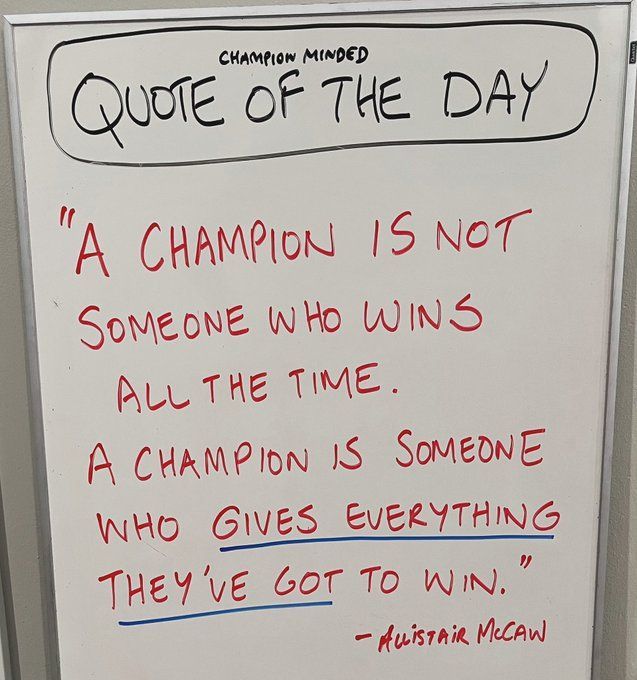 CHAMPION MINDED
QUOTE OF THE DAY
"A CHAMPION IS NOT
SOMEONE WHO WINS
ALL THE TIME.
A CHAMPION IS SOMEONE
WHO GIVES EVERYTHING
THEY'VE GOT TO WIN."
- ALLISTAIR McCAW